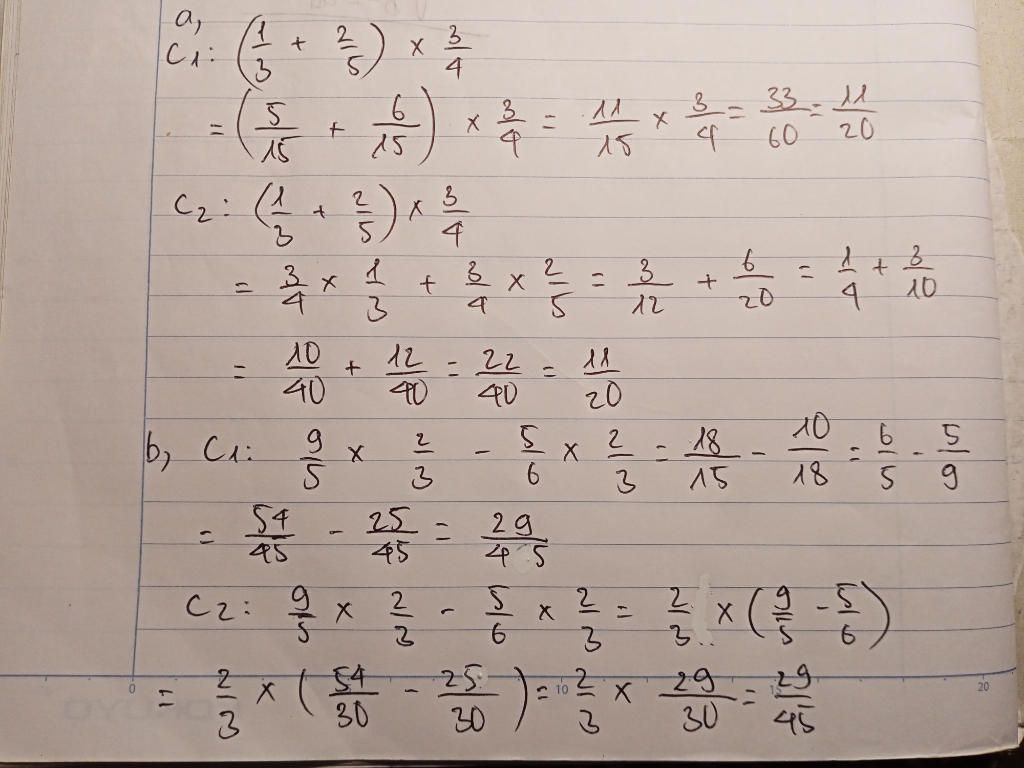 a,
C1: (1/3 + 2/5) × 3/4
= (5/15 + 6/15) × 3/4 = 11/15 × 3/4 = 33/60 = 11/20
C2: (1/3 + 2/5) × 3/4
= 3/4 × 1/3 + 3/4 × 2/5 = 3/12 + 6/20 = 1/4 + 3/10
= 10/40 + 12/40 = 22/40 = 11/20
b, C1: 9/5 × 2/3 - 5/6 × 2/3 = 18/15 - 10/18 = 6/5 - 5/9
= 54/45 - 25/45 = 29/45
C2: 9/5 × 2/3 - 5/6 × 2/3 = 2/3 × (9/5 - 5/6)
= 2/3 × (54/30 - 25/30) = 2/3 × 29/30 = 29/45
0 10 20